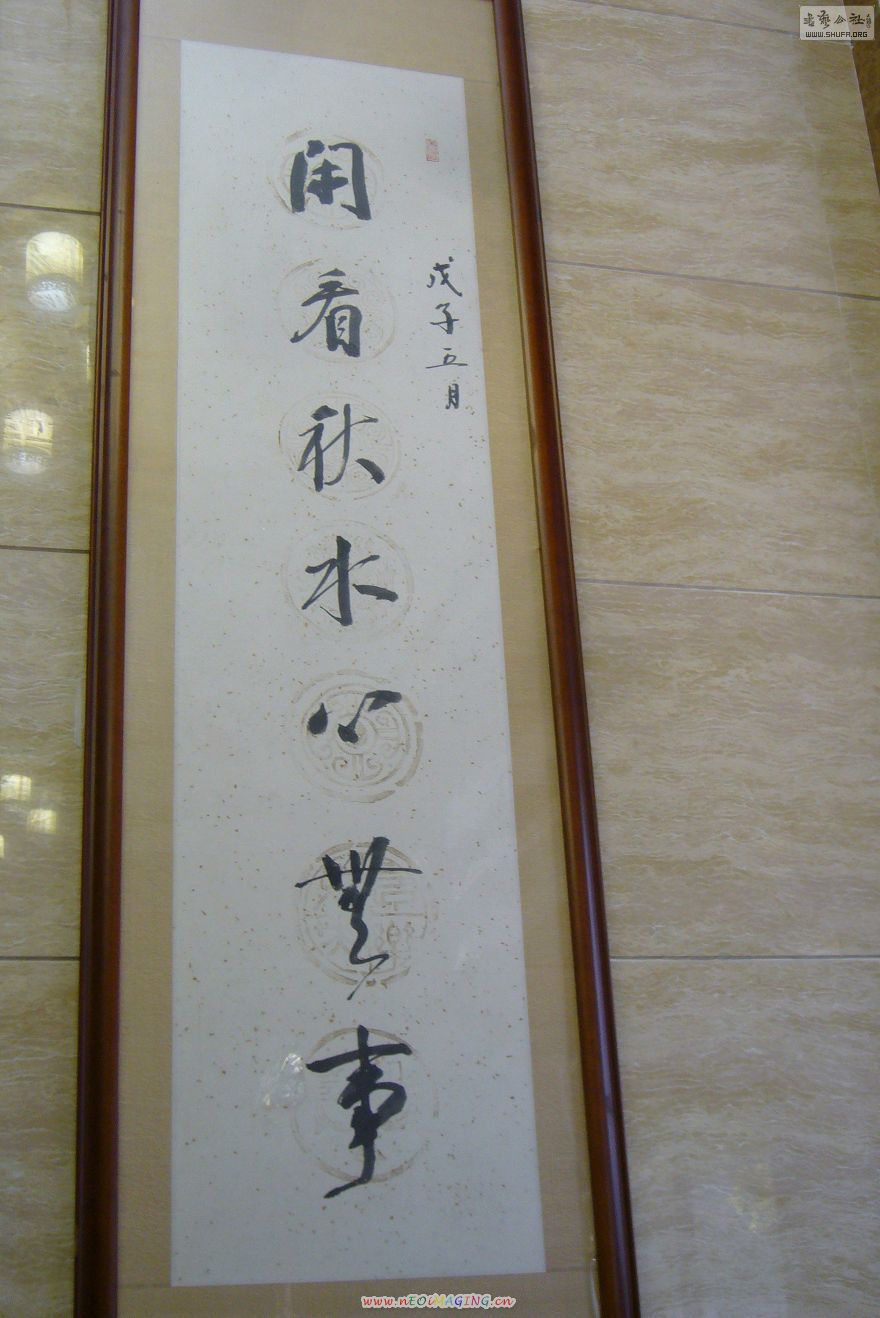 戊子五月
閑看秋水心無事
書藝公社
WWW.SHUFA.ORG
www.nEOiMAGING.cn